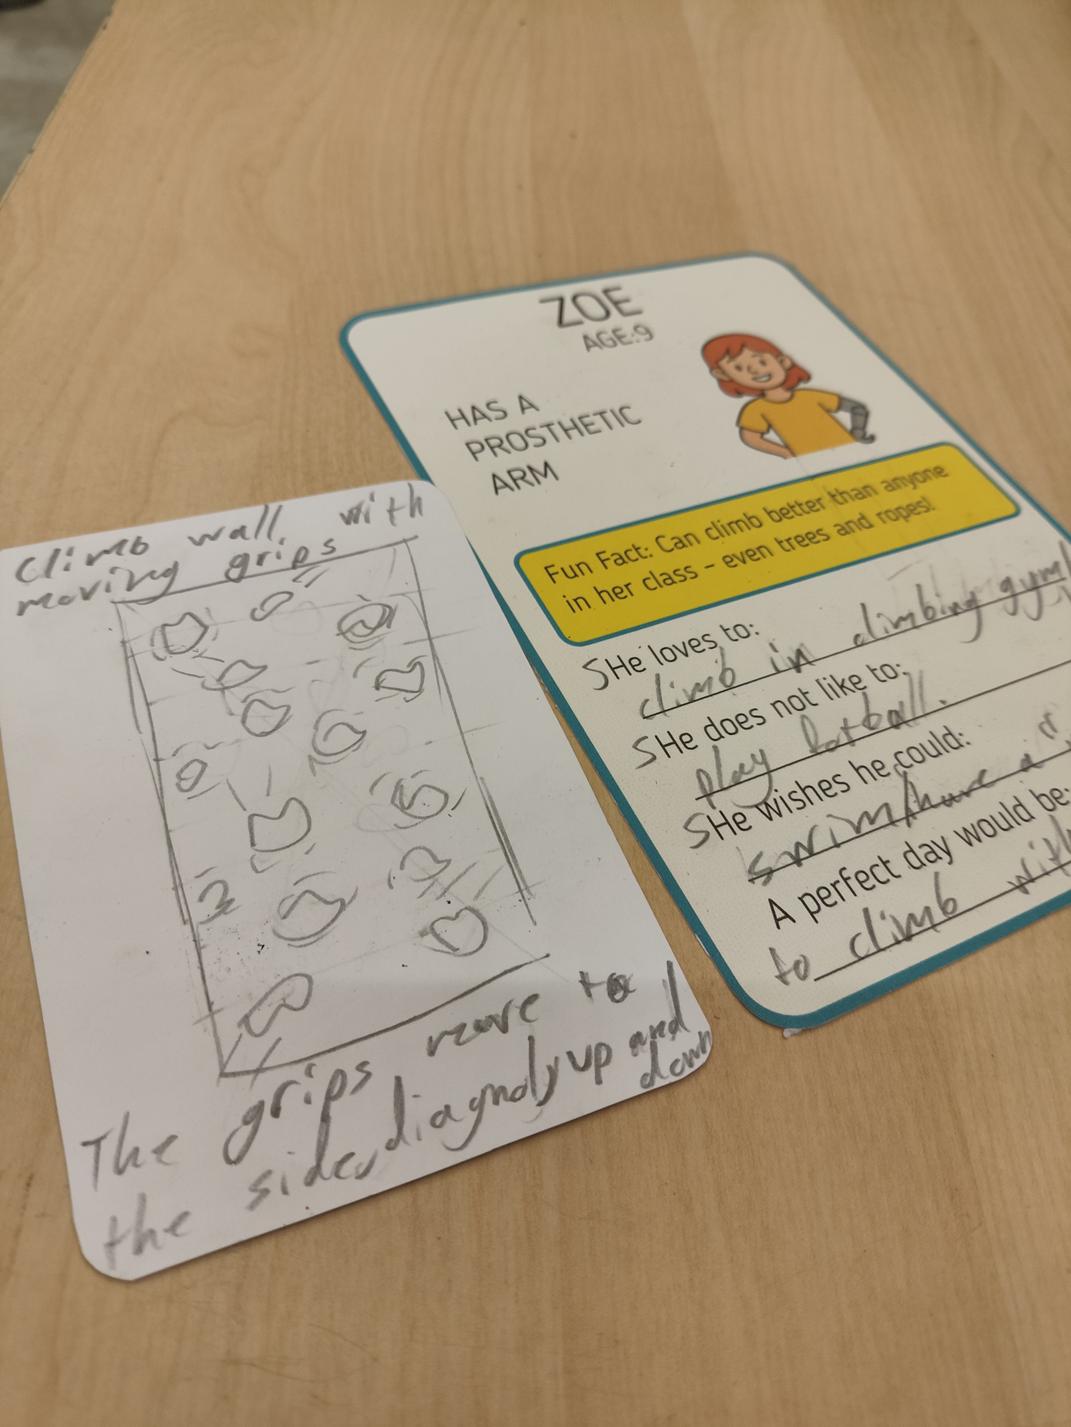 ZOE
AGE:9
HAS A
PROSTHETIC
ARM
Fun Fact: Can climb better than anyone
in her class - even trees and ropes!
SHe loves to:
climb in climbing gym
SHe does not like to:
play fotball.
SHe wishes he could:
swim/have a
A perfect day would be:
to climb with
Climb wall with
moving grips
The grips move to
the sides diagnoly up and
down